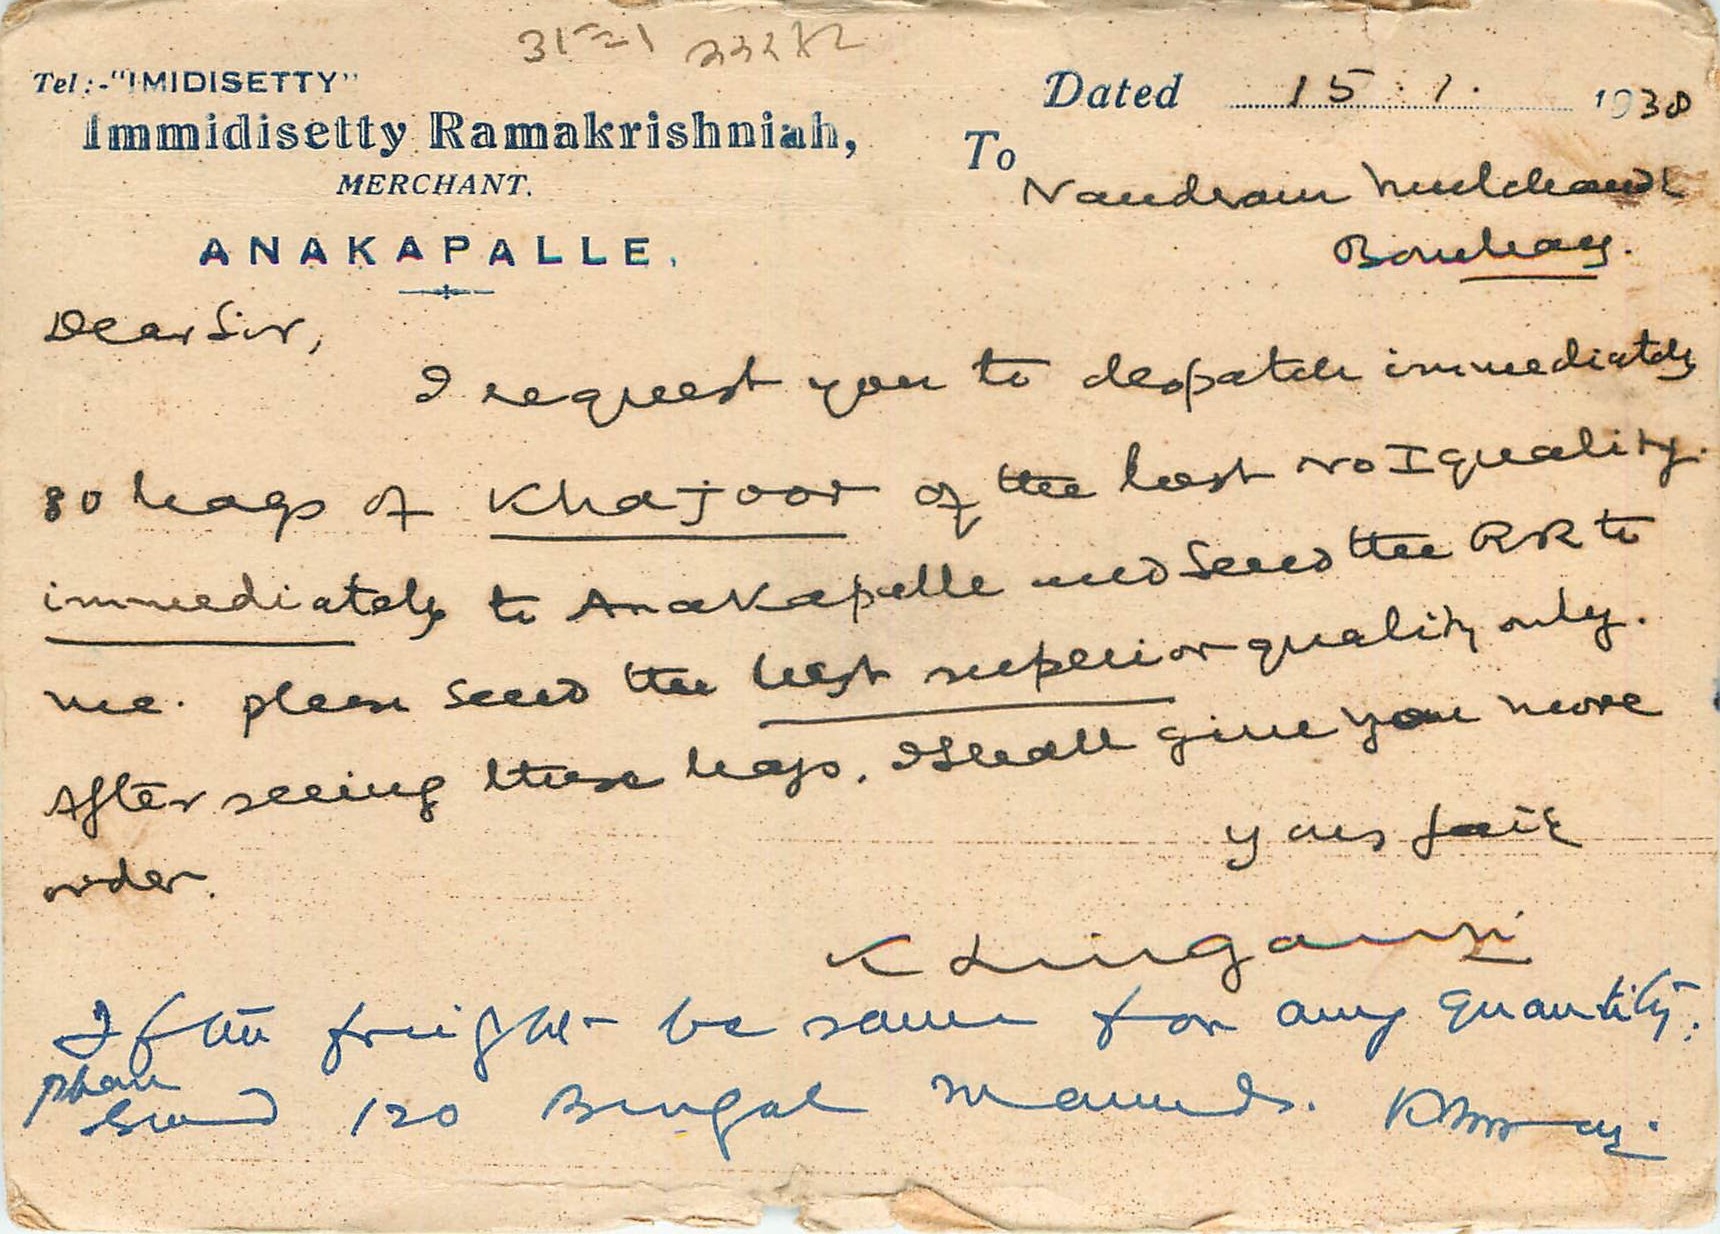 Tel:-"IMIDISETTY"
Immidisetty Ramakrishniah,
MERCHANT.
ANAKAPALLE.
Dated 15.1. 1938
To
Nandram Mulchand
Bombay.
Dear Sir,
I request you to despatch immediately
80 bags of Khajoor of the best No I quality.
immediately to Anakapalle and send the RR to
me. please send the best superior quality only.
After seeing these bags, I shall give you more
order.
yours faith
K Lingam
If the freight be same for any quantity.
please
send 120 Bengal maunds.